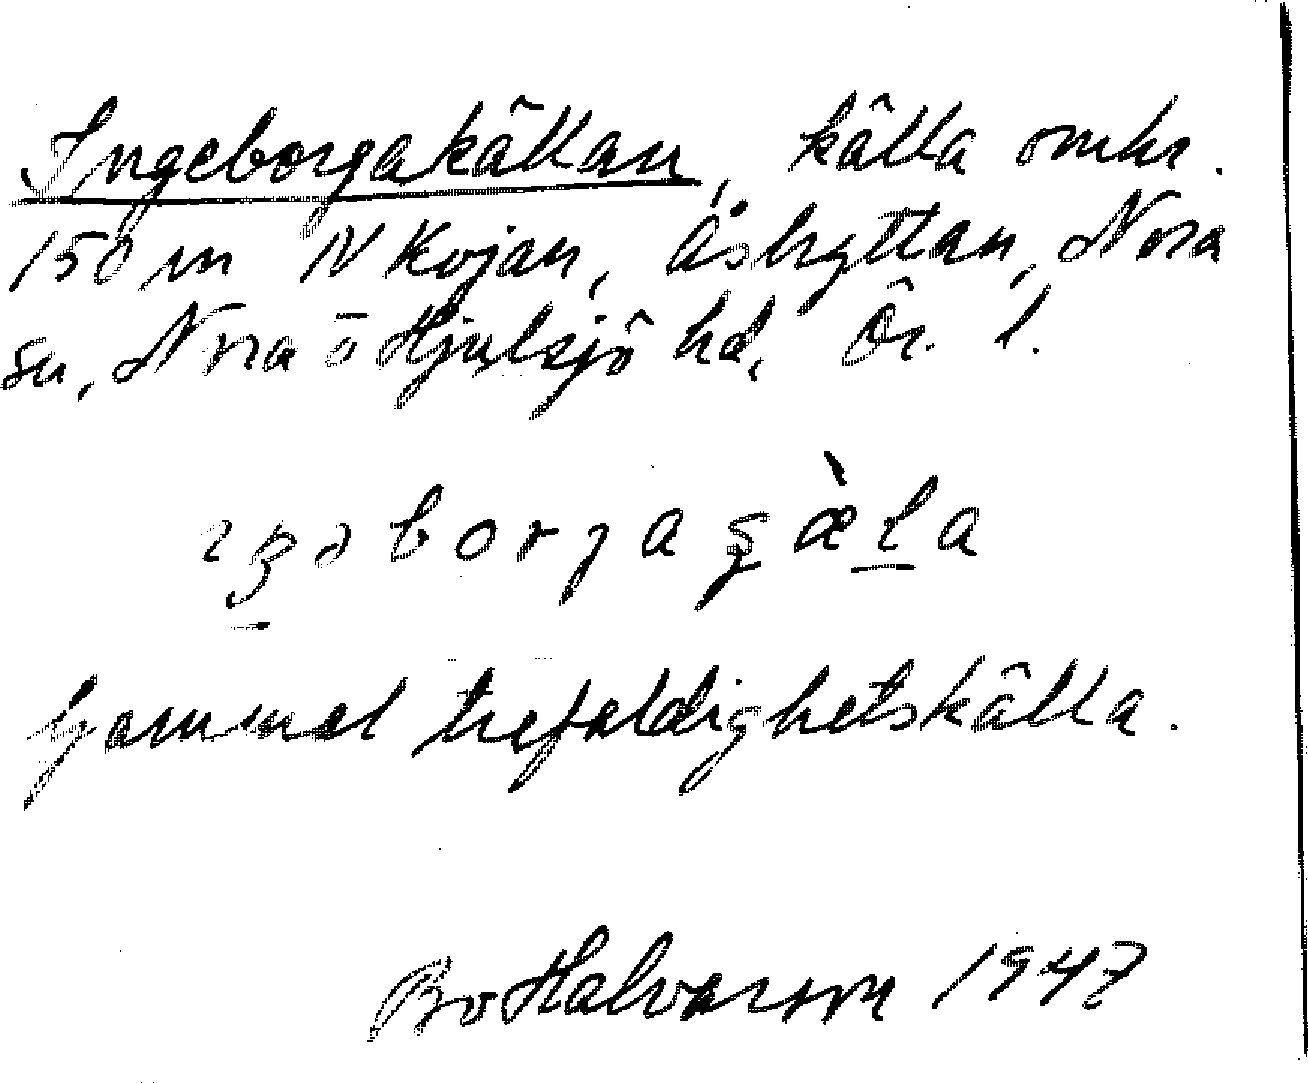 Ingeborgakällan, källa omkr.
150 m N Kojan, Åshyttan, Nora
sn, Nora o Hjulsjö hd, Ör. l.
Gammal trefaldighetskälla.
Bo Halvarsson 1947